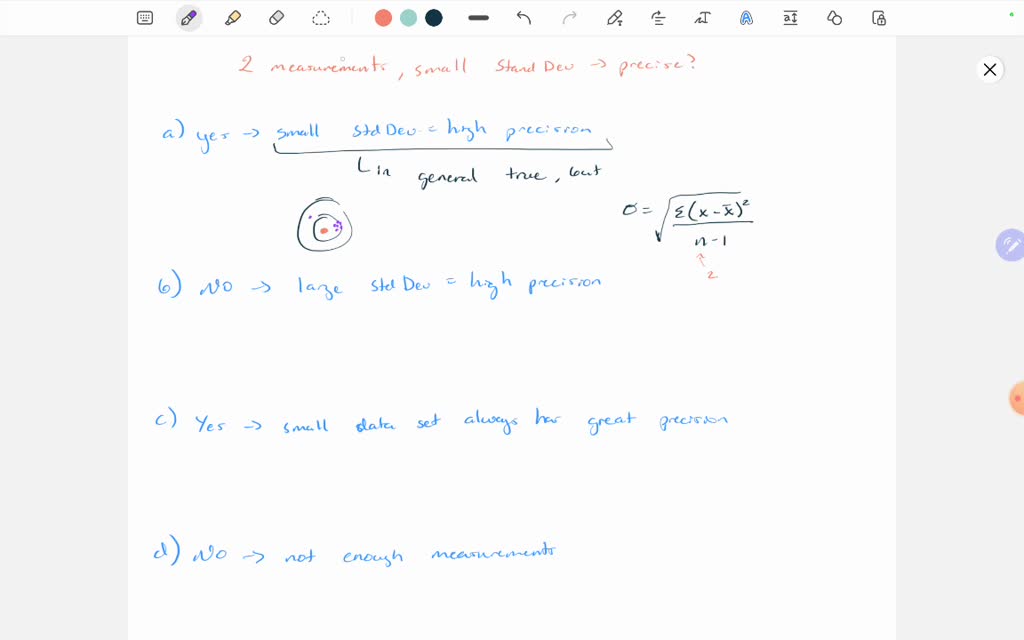 2 measurements, small Stand Dev → precise?
a) yes → small Std Dev = high precision
in general true, but
σ = √Σ(x - x̄)²
n - 1
↑
2
b) NO → large Std Dev = high precision
c) Yes → small data set always has great precision
d) NO → not enough measurements